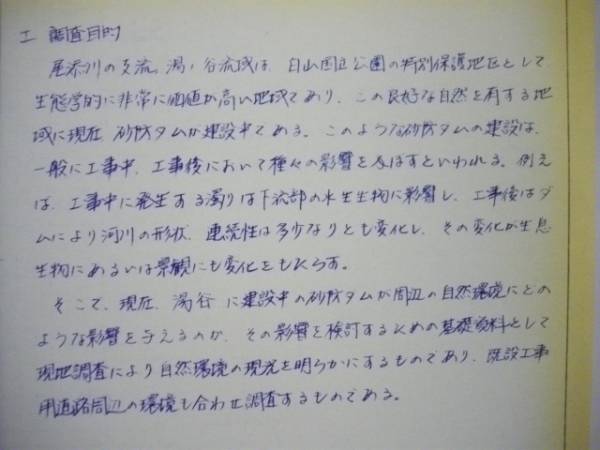 I 調査目的
尾添川の支流、湯ノ谷流域は、白山国立公園の特別保護地区として
生態学的に非常に価値が高い地域であり、この良好な自然を有する地
域に現在、砂防ダムが建設中である。このような砂防ダムの建設は、
一般に工事中、工事後において種々の影響を及ぼすといわれる。例え
ば、工事中に発生する濁りは下流部の水生生物に影響し、工事後はダ
ムにより河川の形状、連続性は多少なりとも変化し、その変化が生息
生物にあるいは景観にも変化をもたらす。
そこで、現在、湯谷に建設中の砂防ダムが周辺の自然環境にどの
ような影響を与えるのか、その影響を検討するための基礎資料として
現地調査により自然環境の現況を明らかにするものであり、既設工事
用道路周辺の環境も合わせ調査するものである。